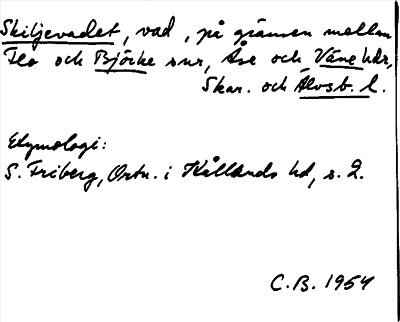 Skiljevadet, vad, på gränsen mellan
Flo och Björke snr, Åse och Väne hdr,
Skar. och Älvsb. l.
Etymologi:
S. Friberg, Ortn. i Kållands hd, s. 2.
C.B. 1954